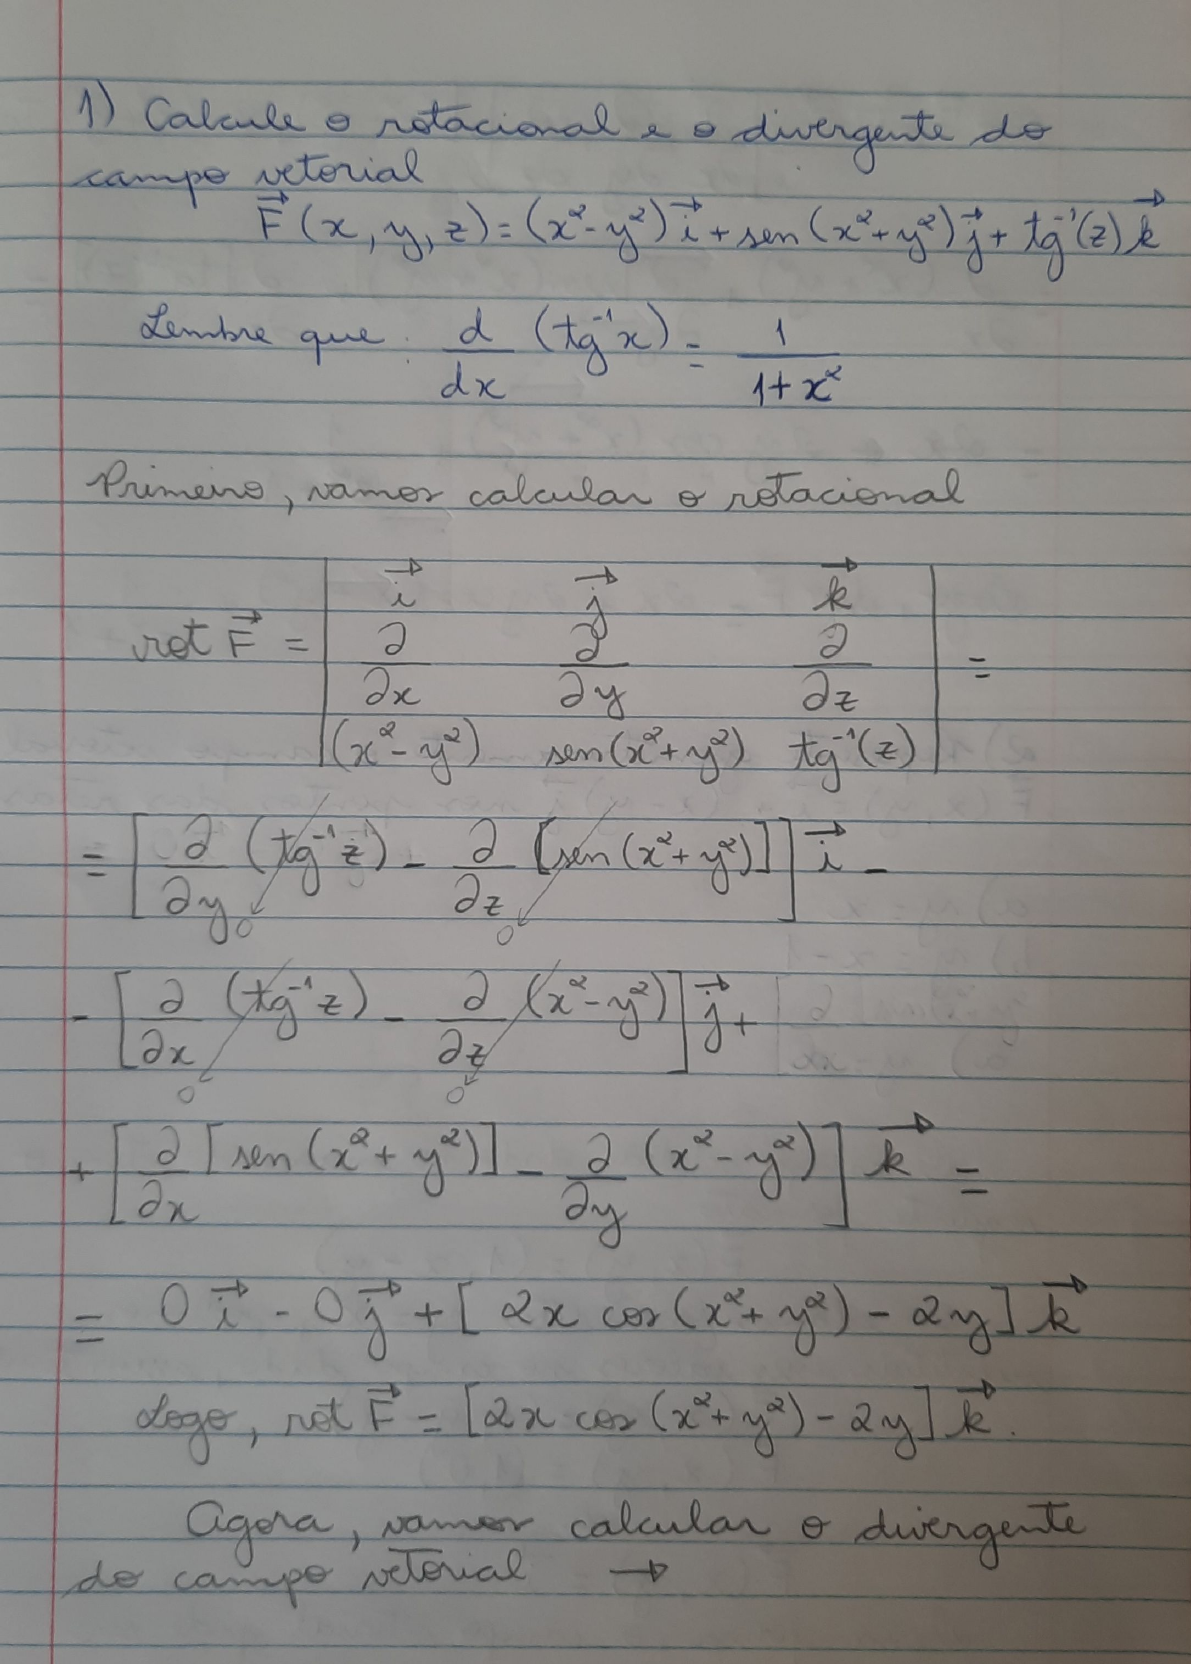 1) Calcule o rotacional e o divergente do
campo vetorial
F⃗(x, y, z) = (x² - y²) i⃗ + sen(x² + y²) j⃗ + tg⁻¹(z) k⃗
Lembre que: d/dx (tg⁻¹x) = 1/(1 + x²)
Primeiro, vamos calcular o rotacional
rot F⃗ = | i⃗ j⃗ k⃗ |
| ∂/∂x ∂/∂y ∂/∂z | =
| (x² - y²) sen(x² + y²) tg⁻¹(z) |
= [∂/∂y (tg⁻¹z) - ∂/∂z [sen(x² + y²)]] i⃗ -
0 0
- [∂/∂x (tg⁻¹z) - ∂/∂z (x² - y²)] j⃗ +
0 0
+ [∂/∂x [sen(x² + y²)] - ∂/∂y (x² - y²)] k⃗ =
= 0 i⃗ - 0 j⃗ + [2x cos(x² + y²) - 2y] k⃗
Logo, rot F⃗ = [2x cos(x² + y²) - 2y] k⃗.
Agora, vamos calcular o divergente
do campo vetorial →